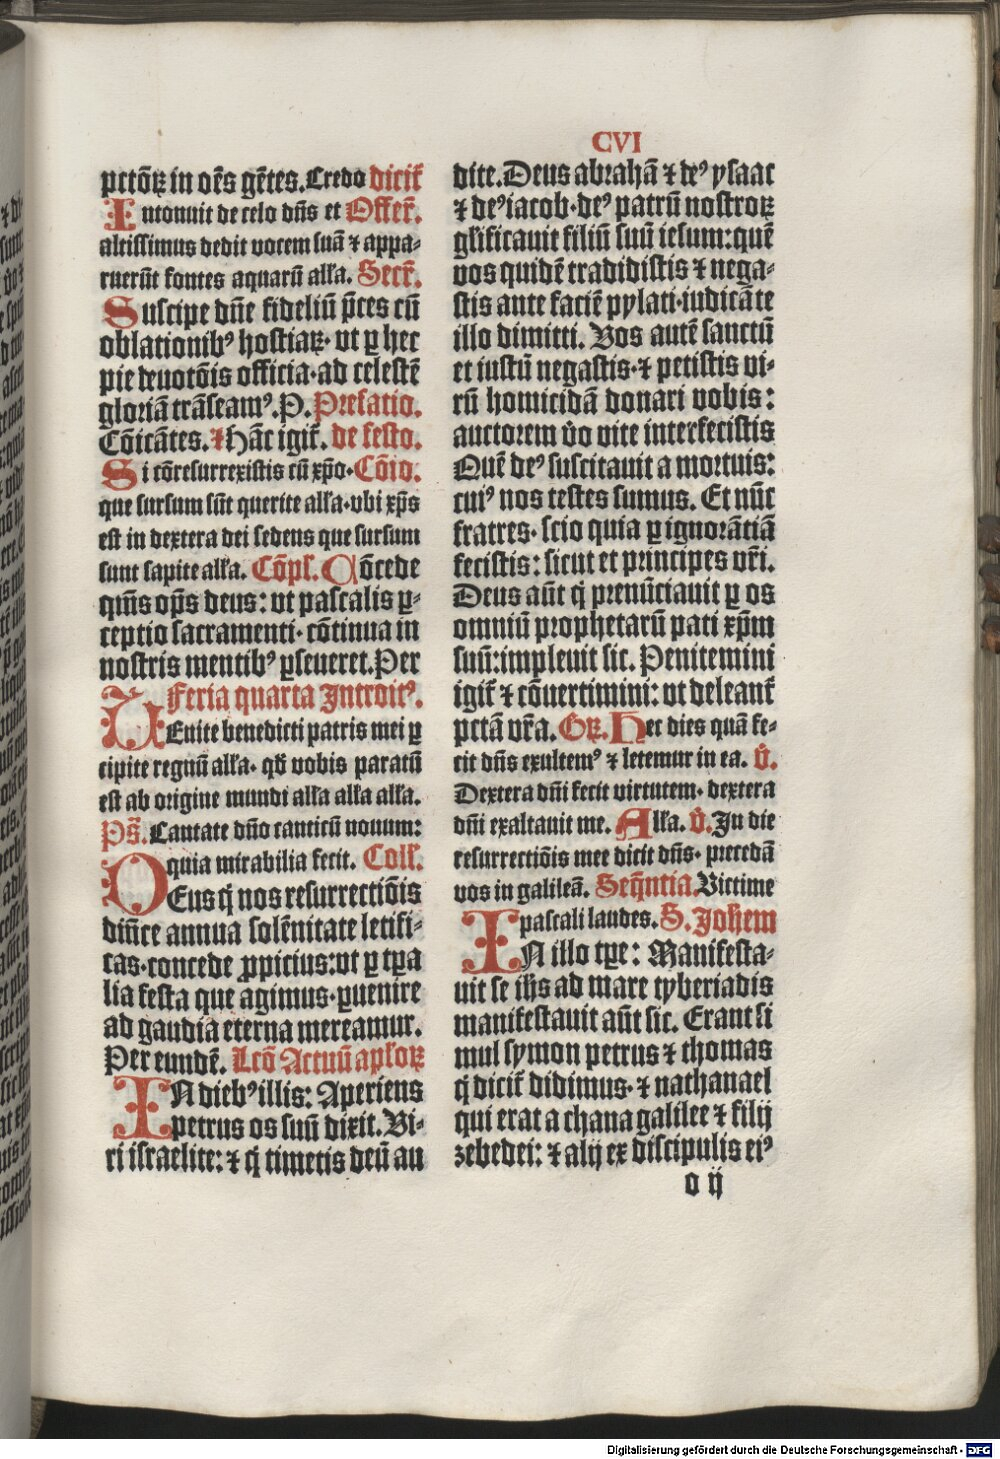 CVI
pctōꝝ in oēs gētes. Credo dicit̄
Intonuit de celo dn̄s et Offer̄.
altissimus dedit vocem suā ⁊ appa-
ruerūt fontes aquarū alľa. Secr̄.
Suscipe dn̄e fideliū p̄ces cū
oblationibꝰ hostiaꝝ· vt ꝑ hec
pie deuotōis officia·ad celestē
gloriā trāseamꝰ. P. Prefatio.
Cōicātes. ⁊ Hāc igit̄. de festo.
Si cōresurrexistis cū xp̄o· Cōio.
que sursum sūt querite alľa·vbi xp̄s
est in dextera dei sedens que sursum
sunt sapite alľa. Cōpľ. Cōcede
qm̄s op̄s deus: vt pascalis ꝑ-
ceptio sacramenti· cōtinua in
nostris mentibꝰ ꝑseueret. Per
Feria quarta Introitꝰ.
VEnite benedicti patris mei ꝑ
cipite regnū alľa· qđ vobis paratū
est ab origine mundi alľa alľa alľa.
Ps̄. Cantate dn̄o canticū nouum:
quia mirabilia fecit. Colľ.
DEus q̄ nos resurrectiōis
dn̄ice annua solēnitate letifi-
cas·concede ꝓpicius:vt ꝑ tꝑa
lia festa que agimus·ꝑuenire
ad gaudia eterna mereamur.
Per eundē. Lcō Actuū apľoꝝ
IN diebꝰ illis: Aperiens
petrus os suū dixit. Vi-
ri israelite: ⁊ q̄ timetis deū au
dite. Deus abrahā ⁊ deꝰ ysaac
⁊ deꝰ iacob·deꝰ patrū nostroꝝ
gľificauit filiū suū iesum:quē
vos quidē tradidistis ⁊ nega-
stis ante faciē pylati·iudicāte
illo dimitti. Vos autē sanctū
et iustū negastis·⁊ petistis vi-
rū homicidā donari vobis:
auctorem v̄o vite interfecistis
Quē deꝰ suscitauit a mortuis:
cuiꝰ nos testes sumus. Et nūc
fratres· scio quia ꝑ ignorātiā
fecistis: sicut et principes vr̄i.
Deus aūt q̄ prenūciauit ꝑ os
omniū prophetarū pati xp̄m
suū:impleuit sic. Penitemini
igit̄ ⁊ cōuertimini: vt deleant̄
pctā vr̄a. Gꝝ. Hec dies quā fe-
cit dn̄s exultemꝰ ⁊ letemur in ea. v̄.
Dextera dn̄i fecit virtutem· dextera
dn̄i exaltauit me. Alľa. v̄. In die
resurrectiōis mee dicit dn̄s· precedā
vos in galileā. Seq̄ntia. Victime
pascali laudes. S. Joħem
IN illo tꝑe: Manifesta-
uit se ihs ad mare tyberiadis
manifestauit aūt sic. Erant si
mul symon petrus ⁊ thomas
q̄ dicit̄ didimus· ⁊ nathanael
qui erat a chana galilee ⁊ filij
zebedei: ⁊ alij ex discipulis eiꝰ
o ij
Digitalisierung gefördert durch die Deutsche Forschungsgemeinschaft - DFG